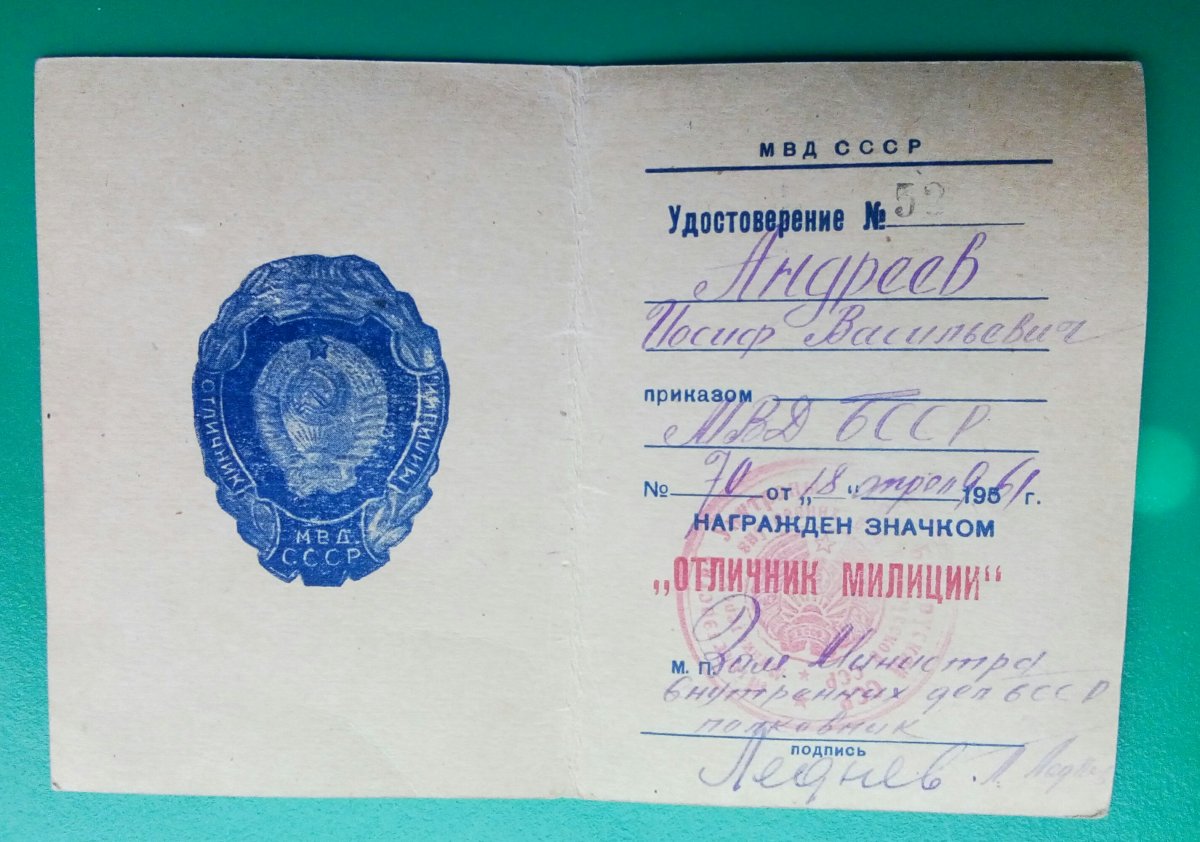 ОТЛИЧНИК
МИЛИЦИИ
МВД
СССР
МВД СССР
Удостоверение № 52
Андреев
Иосиф Васильевич
приказом
МВД БССР
№ 70 от „18“ апреля 1961 г.
НАГРАЖДЕН ЗНАЧКОМ
„ОТЛИЧНИК МИЛИЦИИ“
М. П. Зам. Министра
внутренних дел БССР
полковник
подпись
Леднев